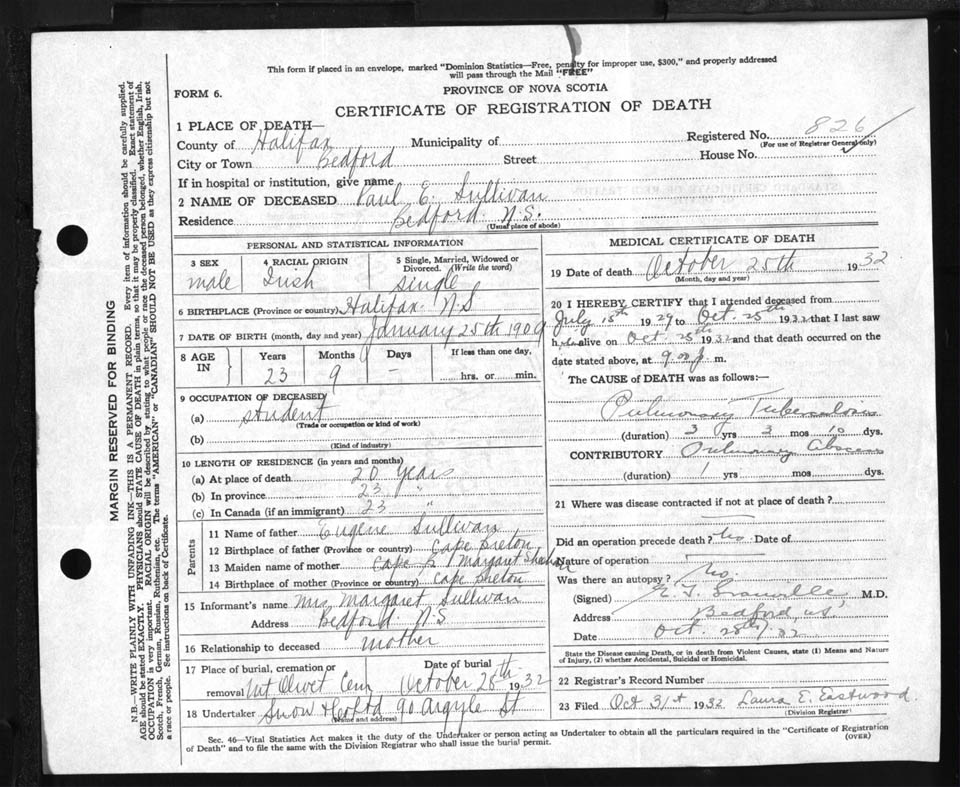 This form if placed in an envelope, marked "Dominion Statistics—Free, penalty for improper use, $300," and properly addressed
will pass through the Mail "FREE"
FORM 6.
PROVINCE OF NOVA SCOTIA
CERTIFICATE OF REGISTRATION OF DEATH
1 PLACE OF DEATH—
Registered No. 826
(For use of Registrar General only)
County of Halifax Municipality of
City or Town Bedford Street House No.
If in hospital or institution, give name
2 NAME OF DECEASED Paul E. Sullivan
Residence Bedford N.S.
(Usual place of abode)
PERSONAL AND STATISTICAL INFORMATION
3 SEX 4 RACIAL ORIGIN 5 Single, Married, Widowed or
Divorced. (Write the word)
male Irish single
6 BIRTHPLACE (Province or country) Halifax N.S
7 DATE OF BIRTH (month, day and year) January 25th 1909
8 AGE IN Years Months Days If less than one day,
23 9 — hrs. or min.
9 OCCUPATION OF DECEASED
(a) student
(Trade or occupation or kind of work)
(b)
(Kind of industry)
10 LENGTH OF RESIDENCE (in years and months)
(a) At place of death 20 years
(b) In province 23 "
(c) In Canada (if an immigrant) 23 "
Parents
11 Name of father Eugene Sullivan
12 Birthplace of father (Province or country) Cape Breton
13 Maiden name of mother Margaret
14 Birthplace of mother (Province or country) Cape Breton
15 Informant's name Mrs Margaret Sullivan
Address Bedford N.S.
16 Relationship to deceased mother
17 Place of burial, cremation or Date of burial
removal Mt Olivet Cem October 28th 1932
18 Undertaker Snow & Co Ltd 90 Argyle St
(Name and address)
MEDICAL CERTIFICATE OF DEATH
19 Date of death October 25th 1932
(Month, day and year)
20 I HEREBY CERTIFY that I attended deceased from
July 15th 1929 to Oct. 25th 1932 that I last saw
him alive on Oct 25th 1932 and that death occurred on the
date stated above, at 9.00 p. m.
The CAUSE of DEATH was as follows:
Pulmonary Tuberculosis
(duration) 3 yrs 3 mos 10 dys.
CONTRIBUTORY Pulmonary Abscess
(duration) 1 yrs mos dys.
21 Where was disease contracted if not at place of death?
Did an operation precede death? No Date of
Nature of operation
Was there an autopsy? No.
(Signed) M.D.
Address Bedford, N.S.
Date Oct. 28th, 32
State the Disease causing Death, or in death from Violent Causes, state (1) Means and Nature
of Injury, (2) whether Accidental, Suicidal or Homicidal.
22 Registrar's Record Number
23 Filed Oct 31st 1932 Laura E. Eastwood.
(Division Registrar)
Sec. 46—Vital Statistics Act makes it the duty of the Undertaker or person acting as Undertaker to obtain all the particulars required in the "Certificate of Registration
of Death" and to file the same with the Division Registrar who shall issue the burial permit. (OVER)
MARGIN RESERVED FOR BINDING
N.B.—WRITE PLAINLY WITH UNFADING INK—THIS IS A PERMANENT RECORD. Every item of information should be carefully supplied.
AGE should be stated EXACTLY. PHYSICIANS should STATE CAUSE OF DEATH in plain terms, so that it may be properly classified. Exact statement of
OCCUPATION is very important. RACIAL ORIGIN will be described by stating to what people or race the deceased person belonged, whether English, Irish,
Scotch, French, German, Russian, Ruthenian, etc. The terms "AMERICAN" or "CANADIAN" SHOULD NOT BE USED as they express citizenship but not
a race or people. See instructions on back of Certificate.